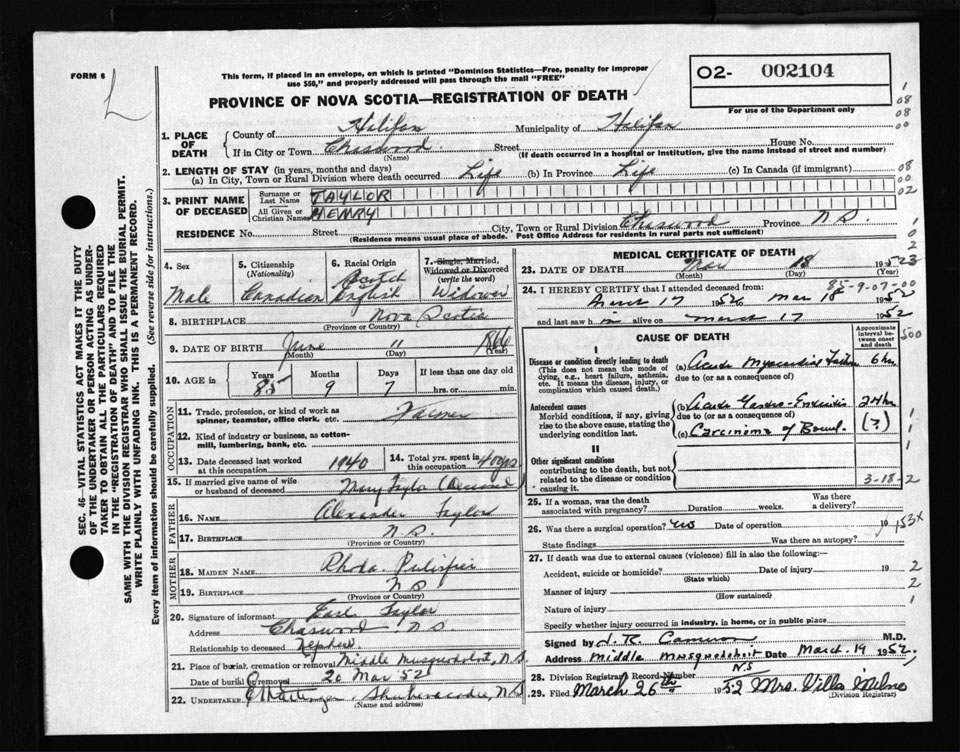 FORM 6
This form, if placed in an envelope, on which is printed "Dominion Statistics—Free, penalty for improper
use $50," and properly addressed will pass through the mail "FREE"
PROVINCE OF NOVA SCOTIA—REGISTRATION OF DEATH
O2- 002104
For use of the Department only
1. PLACE OF DEATH County of Halifax Municipality of Halifax
If in City or Town Chaswood Street House No.
(Name) (If death occurred in a hospital or institution, give the name instead of street and number)
2. LENGTH OF STAY (in years, months and days)
(a) In City, Town or Rural Division where death occurred Life (b) In Province Life (c) In Canada (if immigrant)
3. PRINT NAME OF DECEASED Surname or Last Name TAYLOR
All Given or Christian Names HENRY
RESIDENCE No. Street City, Town or Rural Division Chaswood Province N.S.
(Residence means usual place of abode. Post Office Address for residents in rural parts not sufficient)
4. Sex Male
5. Citizenship (Nationality) Canadian
6. Racial Origin Scotch English
7. Single, Married, Widowed or Divorced (write the word) Widower
8. BIRTHPLACE Nova Scotia
(Province or Country)
9. DATE OF BIRTH June 11 1866
(Month) (Day) (Year)
10. AGE in Years Months Days If less than one day old
85 9 7 hrs. or min.
OCCUPATION
11. Trade, profession, or kind of work as spinner, teamster, office clerk, etc. Farmer
12. Kind of industry or business, as cotton-mill, lumbering, bank, etc.
13. Date deceased last worked at this occupation 1940
14. Total yrs. spent in this occupation 40 yrs
15. If married give name of wife or husband of deceased Mary Taylor (Deceased)
FATHER
16. NAME Alexander Taylor
17. BIRTHPLACE N.S.
(Province or Country)
MOTHER
18. MAIDEN NAME Rhoda
19. BIRTHPLACE N S
(Province or Country)
20. Signature of informant Earl Taylor
Address Chaswood N S
Relationship to deceased Nephew
21. Place of burial, cremation or removal Middle Musquodoboit, N.S.
Date of burial or removal 20 Mar 52
22. UNDERTAKER Shubenacadie, N.S.
(Name and address)
MEDICAL CERTIFICATE OF DEATH
23. DATE OF DEATH Mar 18 1952
(Month) (Day) (Year)
24. I HEREBY CERTIFY that I attended deceased from:
March 17 1952 to Mar 18 1952
85-9-07-00
and last saw h im alive on March 17 1952
CAUSE OF DEATH
Approximate interval between onset and death
I
Disease or condition directly leading to death
(This does not mean the mode of dying, e.g., heart failure, asthenia, etc. It means the disease, injury, or complication which caused death.)
(a) Acute Myocardial Failure 6 hrs
due to (or as a consequence of)
Antecedent causes
Morbid conditions, if any, giving rise to the above cause, stating the underlying condition last.
(b) Acute Gastro-Enteritis 24 hrs
due to (or as a consequence of)
(c) Carcinoma of Bowel (?)
II
Other significant conditions
contributing to the death, but not related to the disease or condition causing it.
3-18-2
25. If a woman, was the death associated with pregnancy? Duration weeks. Was there a delivery?
26. Was there a surgical operation? No Date of operation 19
State findings Was there an autopsy?
27. If death was due to external causes (violence) fill in also the following:—
Accident, suicide or homicide? Date of injury 19
(State which)
Manner of injury
(How sustained)
Nature of injury
Specify whether injury occurred in industry, in home, or in public place
Signed by J. R. Cameron M.D.
Address Middle Musquodoboit Date March 19 1952.
N.S
28. Division Registrar's Record Number
29. Filed March 26th 1952 Mrs. Villa Milne
(Division Registrar)
SEC. 46—VITAL STATISTICS ACT MAKES IT THE DUTY
OF THE UNDERTAKER OR PERSON ACTING AS UNDERTAKER
TO OBTAIN ALL THE PARTICULARS REQUIRED
IN THE "REGISTRATION OF DEATH" AND TO FILE THE
SAME WITH THE DIVISION REGISTRAR WHO SHALL ISSUE THE BURIAL PERMIT.
WRITE PLAINLY WITH UNFADING INK. THIS IS A PERMANENT RECORD.
Every item of information should be carefully supplied. (See reverse side for instructions.)